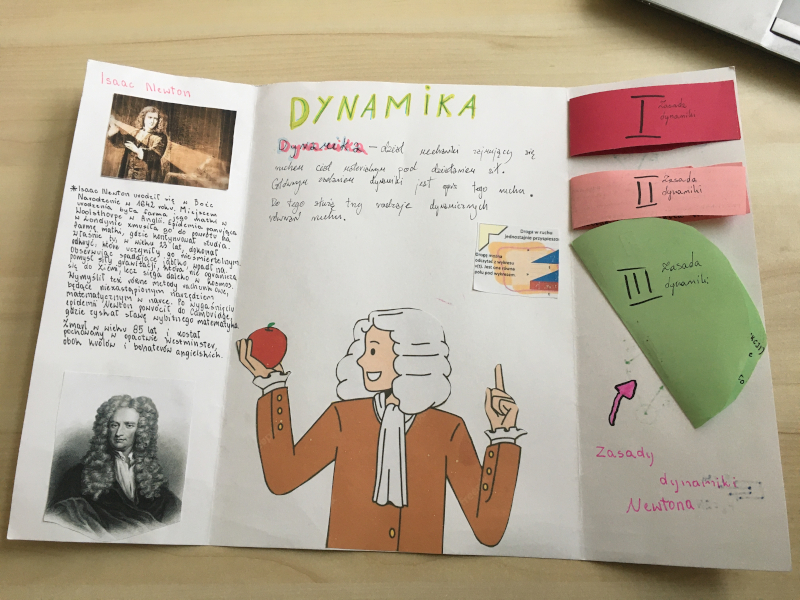 Isaac Newton
*Isaac Newton urodził się w Boże
Narodzenie w 1642 roku. Miejscem
urodzenia była farma jego matki w
Woolsthorpe w Anglii. Epidemia panująca
w Londynie zmusiła go do powrotu na
farmę matki, gdzie kontynuował studia.
Właśnie tu w wieku 23 lat, dokonał
odkryć, które uczyniły go nieśmiertelnym.
Obserwując spadające jabłko, wpadł na
pomysł siły grawitacji, która nie ogranicza
się do Ziemi, lecz sięga daleko w kosmos.
Wymyślił też różne metody rachunkowe,
będące niezastąpionym narzędziem
matematycznym w nauce. Po wygaśnięciu
epidemii Newton powrócił do Cambridge,
gdzie zyskał sławę wybitnego matematyka
Zmarł w wieku 85 lat i został
pochowany w opactwie Westminster,
obok królów i bohaterów angielskich.
DYNAMIKA
Dynamika - dział mechaniki zajmujący się
ruchem ciał materialnych pod działaniem sił.
Głównym zadaniem dynamiki jest opis tego ruchu.
Do tego służą trzy rodzaje dynamicznych
równań ruchu.
Droga w ruchu
jednostajnie przyspieszo
Drogę można
odczytać z wykresu
v(t). Jest ona równa
polu pod wykresem
I zasada
dynamiki
II zasada
dynamiki
III zasada
dynamiki
zasady
dynamiki
Newtona